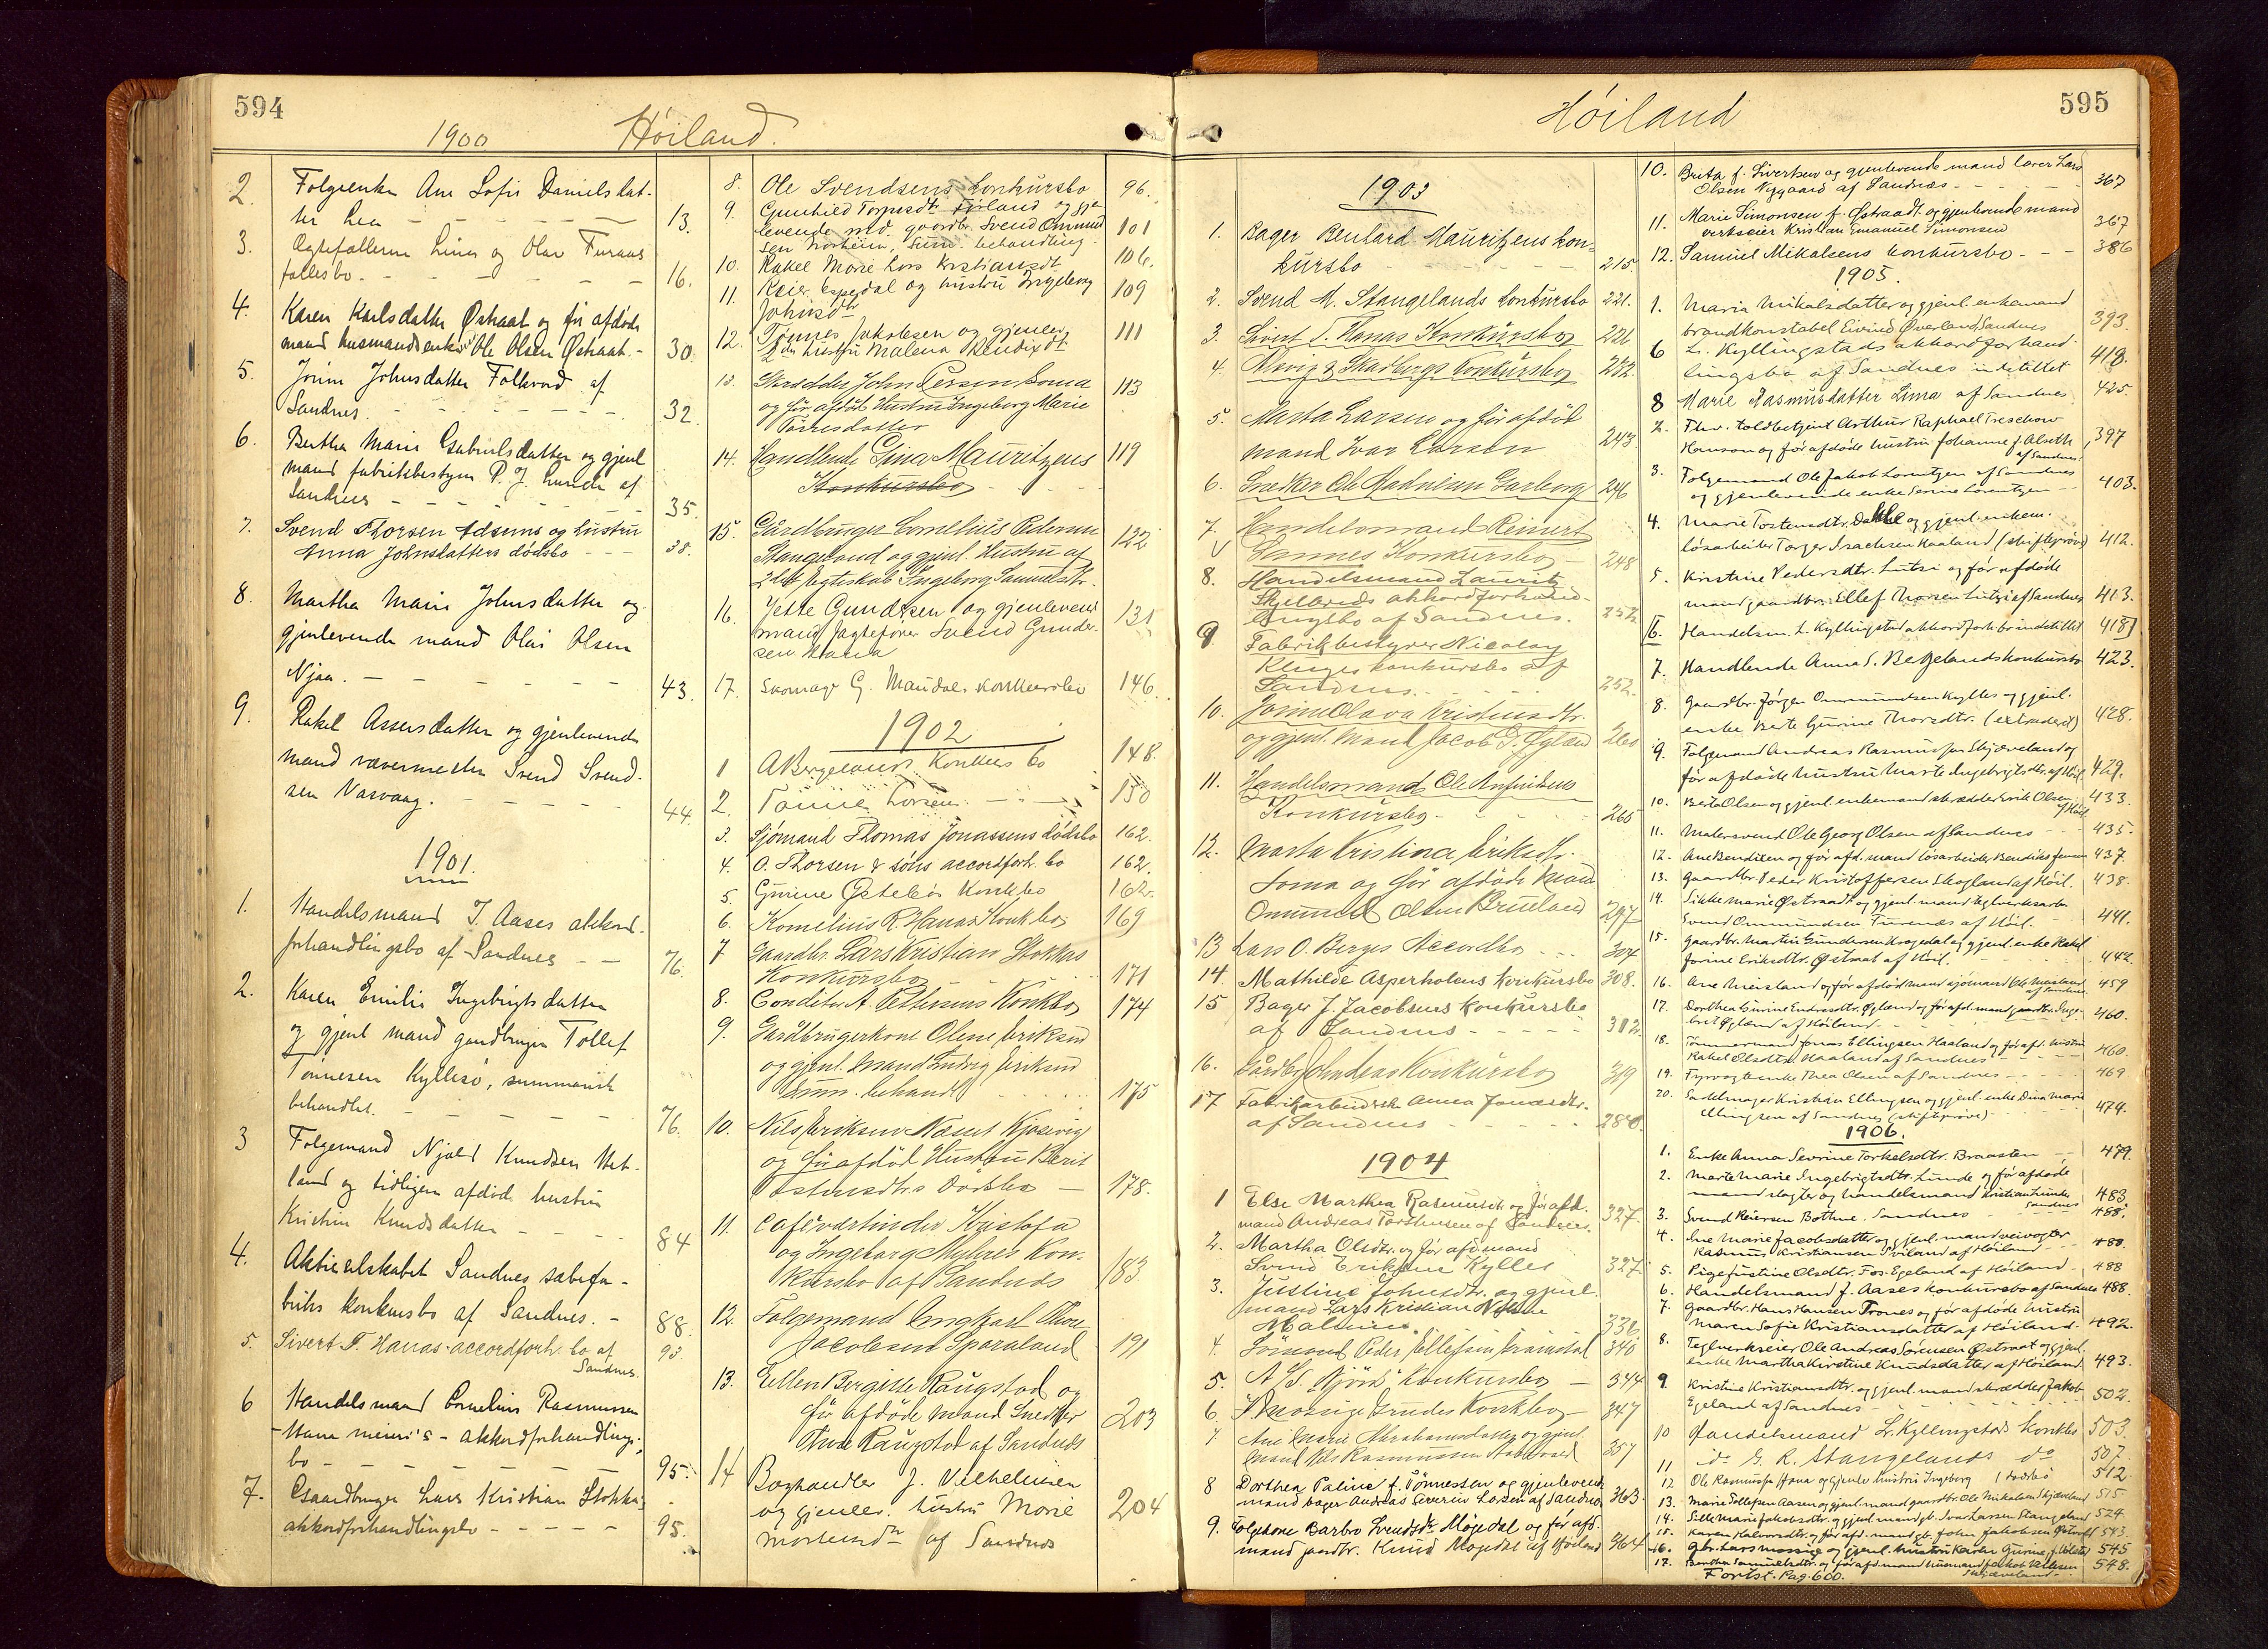 594
1900 Höiland.
2. Folgeenke Ane Sofie Danielsdat-
ter Lea 13.
3. Ægtefællerne Lines og Olav
fællesbo. 16.
4. Karen Karlsdatter Østraat og før afdøde
mand husmand Ole Olsen Østraat. 30.
5. Jorine Johnsdatter Folkvord af
Sandnes. 32.
6. Bertha Marie Gabrielsdatter og gjenl
mand fabrikbestyrer P. J. Lunde af
Sandnes 35.
7. Svend Thorsen Adsems og hustru
Anna Johnsdatters dødsbo 38.
8. Martha Marie Johnsdatter og
gjenlevende mand Olai Olsen
Njaa. 43.
9. Rakel Assersdatter og gjenlevende
mand vævermester Svend Svend-
sen Varvaag. 44.
1901.
1. Handelsmand J. Aases akkord-
forhandlingsbo af Sandnes 76.
2. Karen Emilie Ingebrigtsdatter
og gjenl mand gaardbruger Tollef
Tønnesen Kyllesø, summarisk
behandlet. 76.
3 Folgemand Njæld Knudsen Vet-
land og tidligere afdøde hustru
Kristine Knudsdatter 84
4. Aktieselskabet Sandnes sæbefa-
briks konkursbo af Sandnes. 88.
5. Sivert T. Hanas accordforh. bo af
Sandnes. 93.
6 Handelsmand Cornelius Rasmussen
Hana meieri's akkordforhandlings-
bo 95.
7. Gaardbruger Lars Kristian Stokka
akkordforhandlingsbo 95.
8. Ole Svendsens konkursbo 96.
9. Gunhild Torgersdtr Tjeland og gjen
levende md. gaardbr. Svend Ommund
sen Norheim, Sum. behandling. 101
10. Rakel Marie Lars Kristiansdt 106.
11. Reier Espedal og hustru Ingeborg
Johnsdtr 109
12. Tønnes Jakobsen og gjenlev.
2den hustru Malena Bendixdt. 111
13. Skrædder John Persen Soma
og før afdød Hustru Ingeborg Marie
Torresdatter 113
14. Handlende Gina Mauritzens 119
Konkursbo
15. Gårdbruger Cornelius Pedersen
Stangeland og gjenl. Hustru af
2det Egteskab Ingeborg Samuelsdtr. 122
16. Jette Gundersen og gjenlevend
mand Jagtefører Svend Gunder-
sen Hana 131
17. Skomager G. Maudals konkursbo 146.
1902
1 A Bergelands Konkurs bo 148.
2. Tønnes Larsen 150
3. Sjömand Thomas Jonassens dödsbo 162.
4. O. Thorsen & söns accordforh. bo 162.
5. Gurine Østebøs Konkbo 162.
6. Kornelius R. Hanas Konkbo 169
7 Gaardbr. Lars Kristian Stokkas
Konkursbo 171
8. Conditor A. Pettersens Konkbo 174
9. Gårdbrugerkone Olene Eriksen
og gjenl. Mand Ludvig Eriksen
Sum. behandl. 175
10. Nils Eriksen Næset Kjosavig
og før afdød Hustru Berit
Østensdtrs Dödsbo 178.
11. Cafévertinde Kristofa
og Ingeborg Myhres Kon-
kursbo af Sandnes 183
12. Folgemand Ingkast Thore
Jacobsen Sporaland 191
13. Ellen Bergitte Raugstad og
før afdøde mand Snedker
Thore Raugstad af Sandnes 203
14 Boghandler J. Vilhelmsen
og gjenlev. hustru Marie
Mortensdtr af Sandnes 204
595
Höiland
1903
1. Bager Bernhard Mauritzens Kon-
kursbo 215.
2. Svend M. Stangelands konkursbo 221.
3. Sivert T. Hanas Konkursbo 226
4. Alsvig & Skadbergs Konkursbo 232.
5. Marta Larsen og før afdød
mand Ivar Larsen 243.
6. Snekker Ole Gabrielsen Garborg 246
7. Handelsmand Reinert
Hannes Konkursbo 248
8. Handelsmand Lauritz
Skjelbreds akkordforhand-
lingsbo af Sandnes. 252
9 Fabrikbestyrer Nicolay
Kluges konkursbo af
Sandnes. 252.
10. Jorine Olava Kristensdtr.
og gjenl. mand Jacob T. Øgland 260
11. Handelsmand Ole Anfindsens
Konkursbo 265
12. Marta Kristina Eriksdtr.
Soma og før afdöde Mand
Ommund Olsen Brueland 297
13 Lars O. Berges Accordbo 304
14. Mathilde Asperholens Konkursbo 308.
15 Bager J. Jacobsens Konkursbo
af Sandnes 312.
16. Gårdbr Johs Leas Konkursbo 319
17 Fabrikarbeiderske Anna Jonasdtr.
af Sandnes 280.
1904
1 Else Marthea Rasmusdt og før afd.
mand Andreas Torstensen af Sandnes. 327.
2. Martha Olsdtr. og før afd mand
Svend Eriksen Kylles 327.
3. Justine Johnsdtr. og gjenl.
mand Lars Kristian Nilsen
Malmin. 336
4. Sømand Peder Ellefsen Fraimdal 340
5. A/S. "Njörd" Konkursbo 344
6. Konkbo 347
7 Ane Marie Abrahamsdatter og gjenl.
mand Nils Rasmussen 357
8 Dorthea Paline f. Tönnessen og gjenlevende
mand bager Andreas Severin Larsen af Sandnes 363.
9. Folgekone Barbro Svendsdtr Møgedal og før afd.
mand gaardbr. Knud Møgedal af Høiland 364
10. Berta f. Sivertsen og gjenlevende mand lærer Lars
Olsen Nygaard af Sandnes 367
11. Marie Simonsen f. Østraadt og gjenlevende mand
verkseier Kristian Emanuel Simonsen 367
12. Samuel Mikalsens konkursbo 386
1905.
1. Maria Mikalsdatter og gjenl. enkemand
brandkonstabel Eivind Øverland, Sandnes 393.
6 L. Kyllingstads akkordforhand-
lingsbo af Sandnes indstillet 418.
8 Marie Rasmusdatter Lima af Sandnes 425.
2. Fhv. toldbetjent Arthur Raphael Treschow
Hanson og før afdøde hustru Johanne f. Alseth
af Sandnes. 397
3. Folgemand Ole Jakob Lorentzen af Sandnes
og gjenlevende enke Serine Lorentzen 403.
4. Marie Tostensdtr. Dahle og gjenl. enkem.
løsarbeider Torger Isachsen Haaland (skifteprøvd) 412.
5. Kristine Pedersdtr. Lutsi og før afdøde
mand gaardbr. Ellef Thorsen Lutsi af Sandnes 413.
[6. Handelsm. L. Kyllingstad akkordforh. bo indstillet 418]
7. Handlende Anna S. Bergelands konkursbo 423.
8. Gaardbr. Jørgen Ommundsen Kylles og gjenl.
enke Berte Gurine Thorsdtr. (extraderet) 428.
9. Folgemand Andreas Rasmussen Skjæveland og
før afdøde hustru Marte Ingebrigtsdtr. af Höil. 429.
10. Berta Olsen og gjenl. enkemand skrædder Erik Olsen
af Höil. 433.
11. Malersvend Ole Georg Olsen af Sandnes 435.
12. Ane Bendixen og før afd. mand løsarbeider Bendiks Jensen 437.
13. Gaardbr. Peder Kristoffersen Skogland af Höil. 438.
14. Sikke Marie Østraadt og gjenl. mand teglverksarb.
Svend Ommundsen Turenæs af Höil. 441.
15. Gaardbr. Martin Gundersen Krogedal og gjenl. enke Rakel
Jorine Eriksdtr. Østraat af Höil. 442.
16. Ane Meisland og før afdød mand sjömand Ole Meisland
af Sandnes 459
17. Dorthea Gurine Endresdtr. Øgland og før afd. mand gaardbr. Inge-
bret Øgland af Höiland 460.
18. Tømmermand Jonas Ellingsen Haaland og før afd. hustru
Rakel Olsdtr. Haaland af Sandnes 460.
19. Fyrvogterenke Thea Olsen af Sandnes 469
20. Sadelmager Kristian Ellingsen og gjenl. enke Dina Marie
Ellingsen af Sandnes (skifteprøve) 474.
1906.
1. Enke Anna Sevrine Torkelsdtr. Braasten 479.
2. Marte Marie Ingebrigtsdtr. Lunde og før afdøde
mand slagter og handelsmand Kristian Lunde,
Sandnes 483
3. Svend Reiersen Bothne, Sandnes 488.
4. Ane Marie Jacobsdatter og gjenl. mand veivogter
Rasmus Kristiansen Sviland af Höiland 488.
5. Pige Justine Olsdtr. Fos-Egeland af Höiland 488
6. Handelsmand J. Aases konkursbo af Sandnes 488.
7. Gaardbr. Hans Hansen Trones og før afdøde hustru
Maren Sofie Kristiansdatter af Höiland. 492.
8. Teglverkseier Ole Andreas Sørensen Østraat og gjenl.
enke Martha Kirstine Knudsdatter af Höiland 493.
9. Kristine Kristiansdtr. og gjenl. mand skrædder Jakob
Egeland af Sandnes 502.
10 Handelsmand L. Kyllingstads konkbo 503.
11 do G. R. Stangelands do 507.
12 Ole Rasmussen Hana og gjenlev hustru Ingeborg (dødsbo 512
13. Marie Tollefsen Aasen og gjenl. mand gaardbr. Ole Mikalsen Skjæveland 515
14. Sille Marie Jakobsdtr. og gjenl. mand gb. Ivar Larsen Stangeland 524
15. Karen Halvorsdtr. og før afd. mand gb. John Jakobsen Østvold 543.
16. Gbr. Lars Mossige og gjenl. hustru Karen Gurine f. Hølstad 545
17. Berthe Samuelsdtr. og før afd. mand husmand Jakob Nilsen
Skjæveland 548.
Forts. Pag. 600.